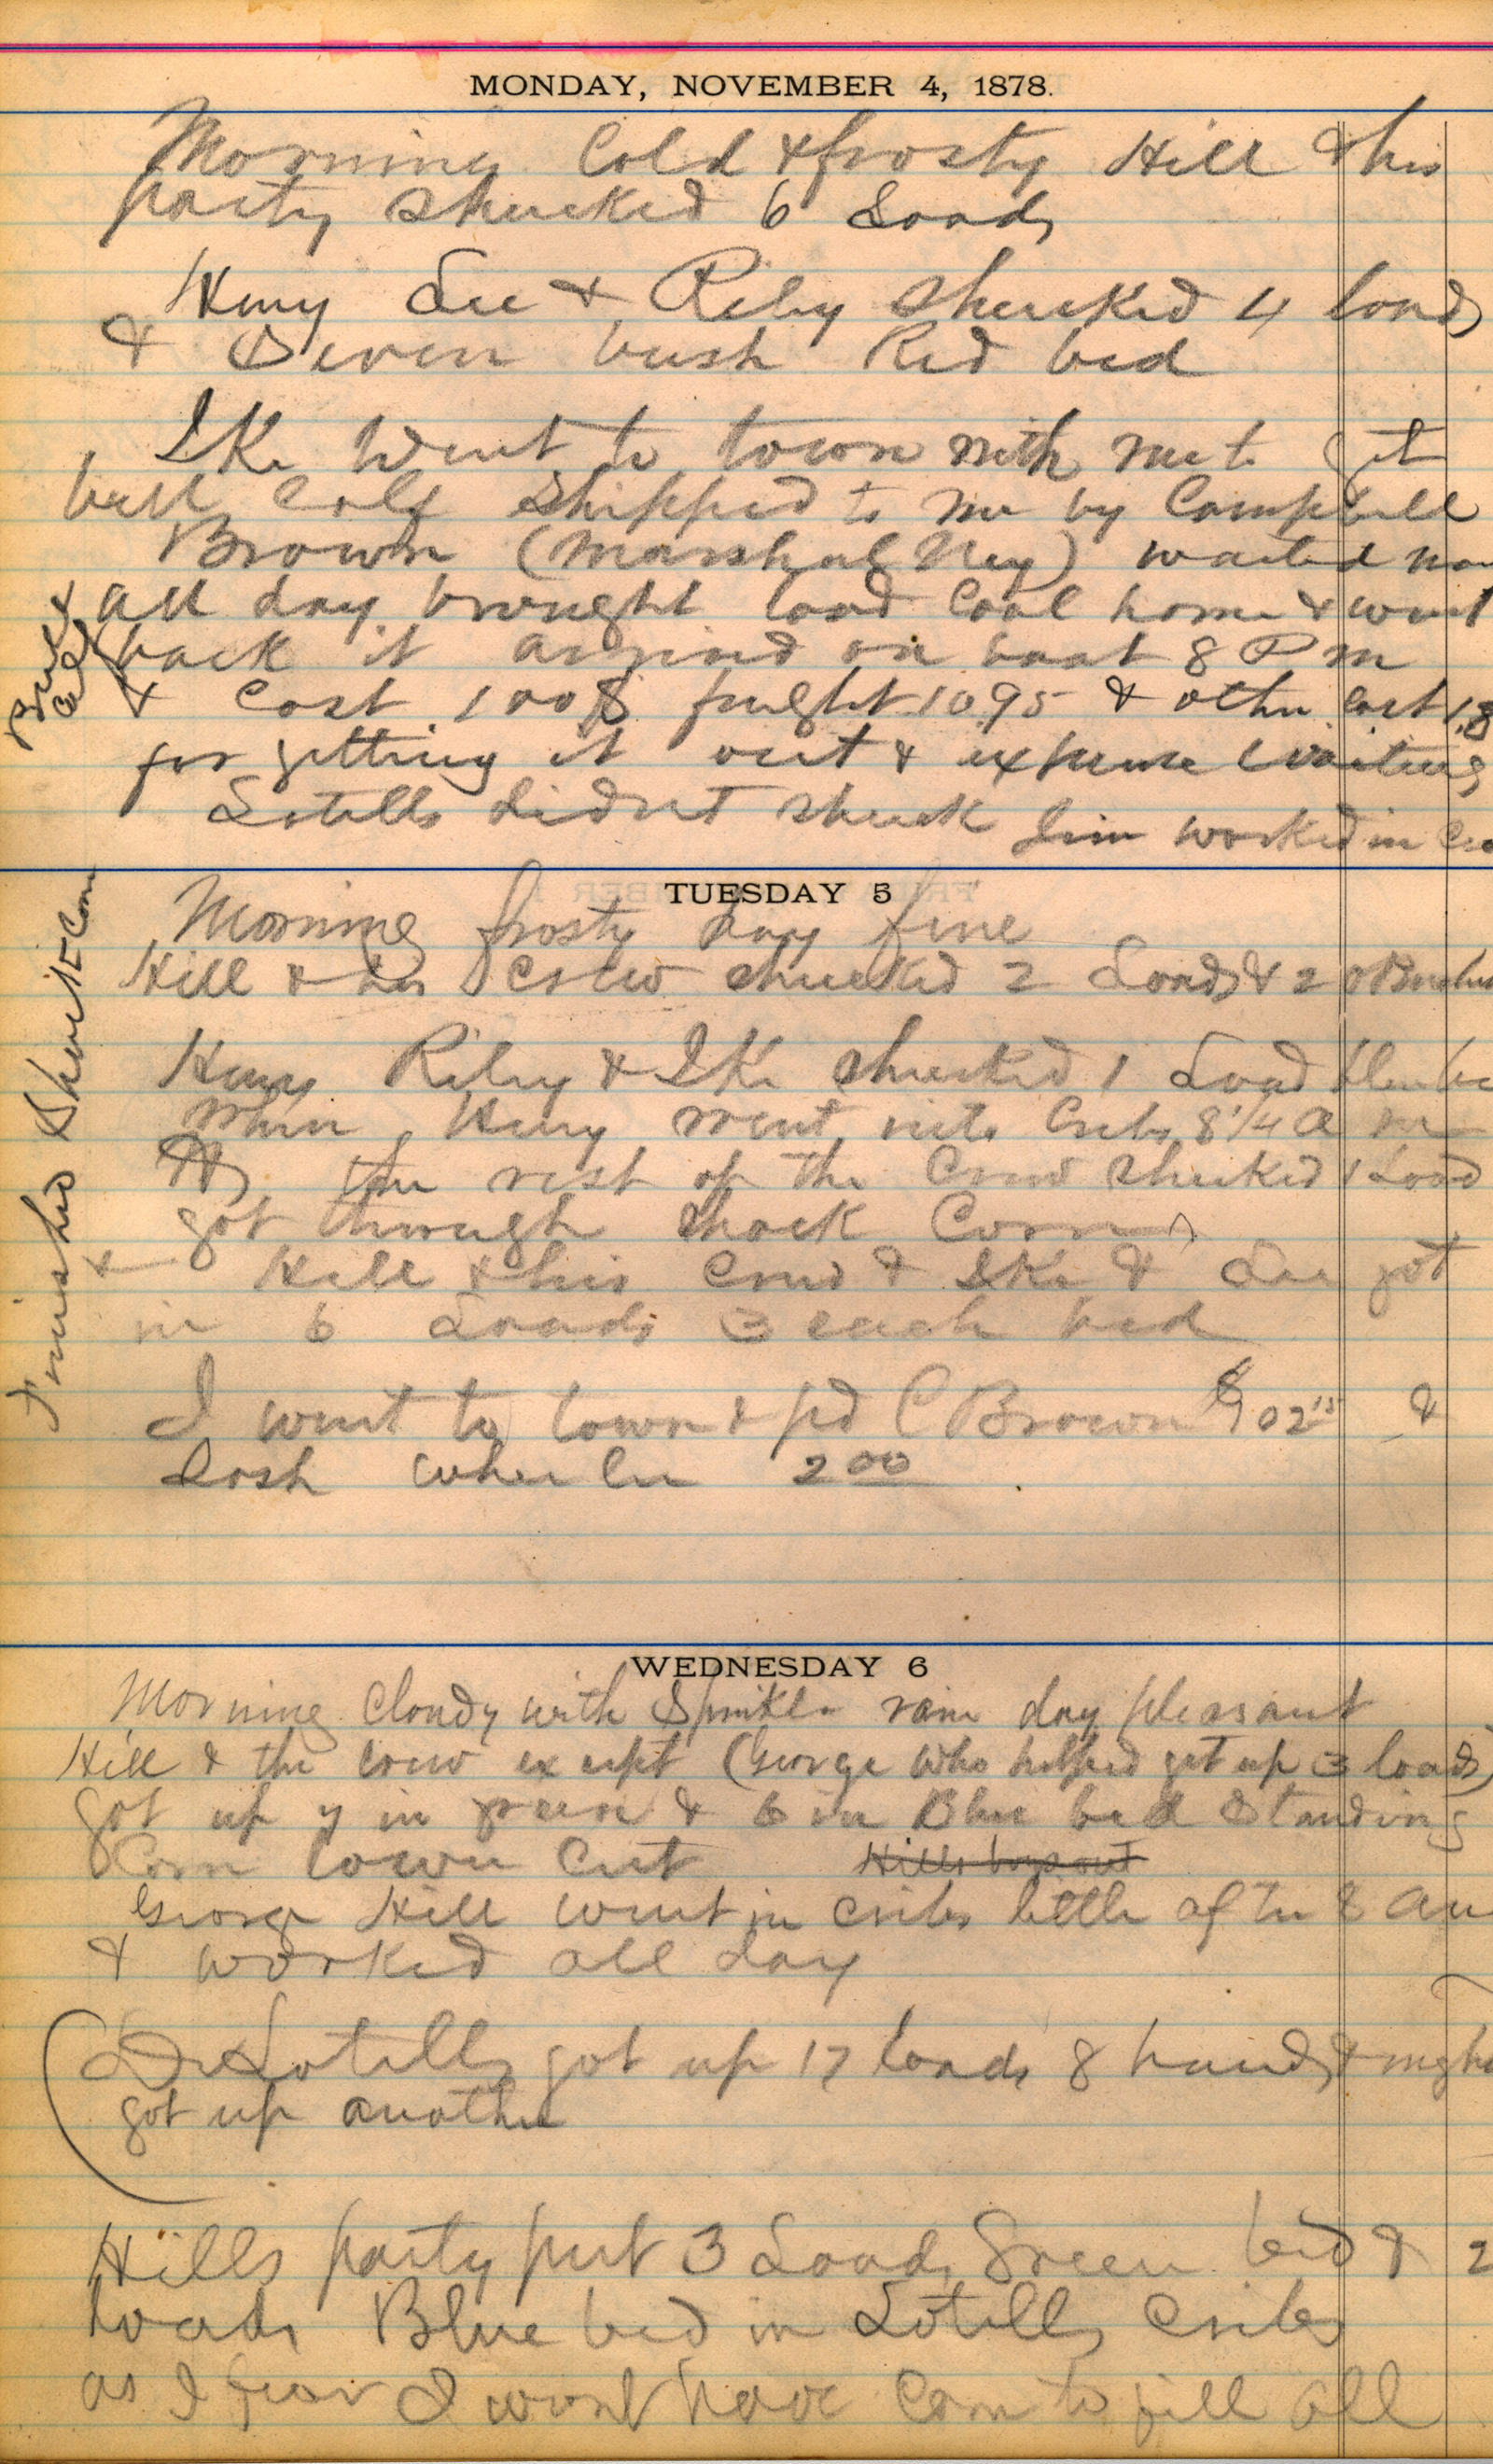 MONDAY, NOVEMBER 4, 1878.
Morning Cold & frosty Hill & his
party shucked 6 Loads
Henry Lee & Riley shucked 4 loads
& Seven bush Red bed
IKe Went to town with me to get
bull Calf Shipped to me by Campbell
Brown (Marshal Ney) waited
all day brought load Coal home & went
back it arrived on boat 8 P m
& Cost 100$ freight 10.95 & other cost 1.8
for getting it out & expense waiting
Lotills didnt shuck Jim worked in
Bull
Calf
TUESDAY 5
Morning frosty day fine
Hill & his crew shucked 2 Loads & 20 Bushes
Henry Riley & IKe shucked 1 Load
When Henry went into Cribs 8 1/4 a m
the rest of the Crew shucked 1 Load
got through shock Corn
& Hill & his Crew & IKe & Lee got
in 6 Loads 3 each bed
I went to town & pd C Brown $102 15 &
Dosh Wheeler 2 00
Finished Shock Corn
WEDNESDAY 6
Morning Cloudy with Sprinkle rain day pleasant
Hill & the crew except (George who helped get up 3 loads)
got up 7 in green & 6 in Blue bed Standing
Corn lower Cut Hills boys out
George Hill went in cribs little after 8 am
& worked all day
Dr Lotills got up 17 loads 8 hands &
got up another
Hills party put 3 Loads Green bed & 2
loads Blue bed in Lotills Cribs
as I fear I wont have Corn to fill all